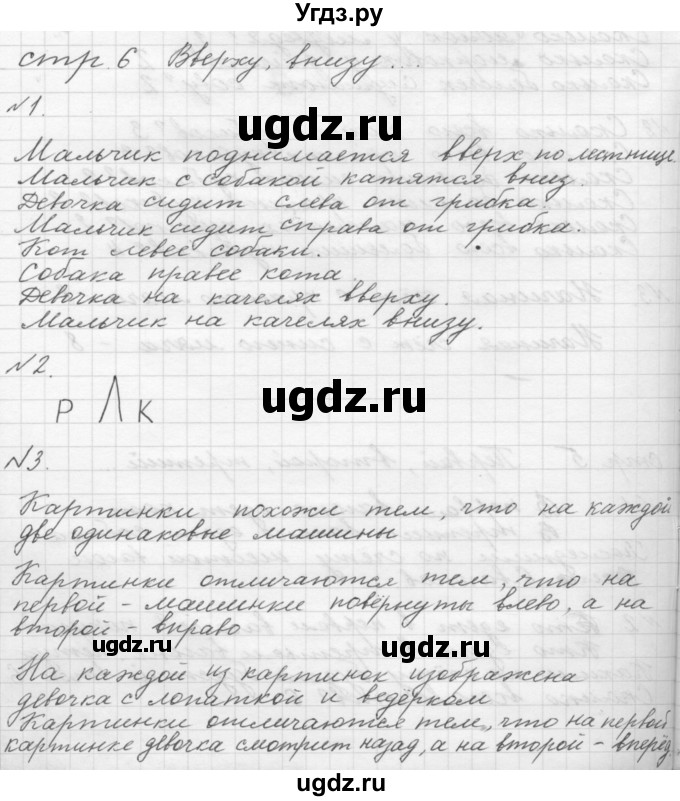 Угдз.ру
стр. 6 Вверху, внизу...
№1.
Мальчик поднимается вверх по лестнице.
Мальчик с собакой катятся вниз.
Девочка сидит слева от грибка.
Мальчик сидит справа от грибка.
Кот левее собаки.
Собака правее кота.
Девочка на качелях вверху.
Мальчик на качелях внизу.
№2.
Р Л К
№3.
Картинки похожи тем, что на каждой
две одинаковые машины
Картинки отличаются тем, что на
первой - машинки повёрнуты влево, а на
второй - вправо
На каждой из картинок изображена
девочка с лопаткой и ведёрком
Картинки отличаются тем, что на первой
картинке девочка смотрит назад, а на второй - вперёд
ugdz.ru
ugdz.ru
ugdz.ru
ugdz.ru
ugdz.ru
ugdz.ru
ugdz.ru